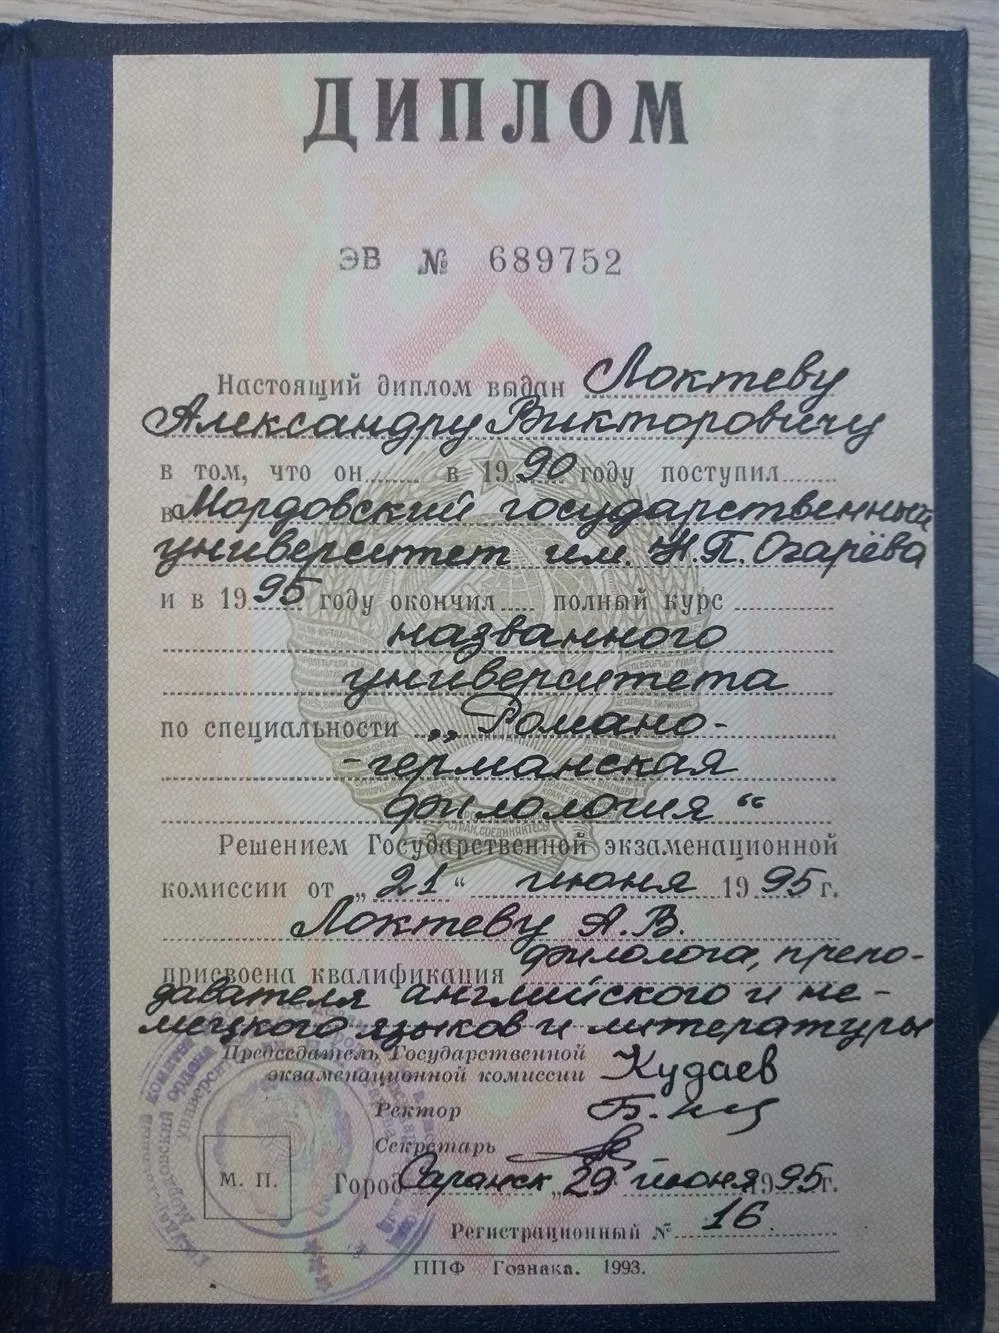 ДИПЛОМ
ЭВ № 689752
Настоящий диплом выдан Локтеву
Александру Викторовичу
в том, что он в 1990 году поступил
в Мордовский государственный
университет им. Н.П. Огарёва
и в 1995 году окончил полный курс
названного
университета
по специальности „Романо-
-германская
филология“
Решением Государственной экзаменационной
комиссии от „21“ июня 1995 г.
Локтеву А. В.
присвоена квалификация филолога, препо-
давателя английского и не-
мецкого языков и литературы
Председатель Государственной
экзаменационной комиссии Кудаев
Ректор
Секретарь
М. П.
Город Саранск „29 июня 1995г.
Регистрационный № 16
ППФ Гознака. 1993.